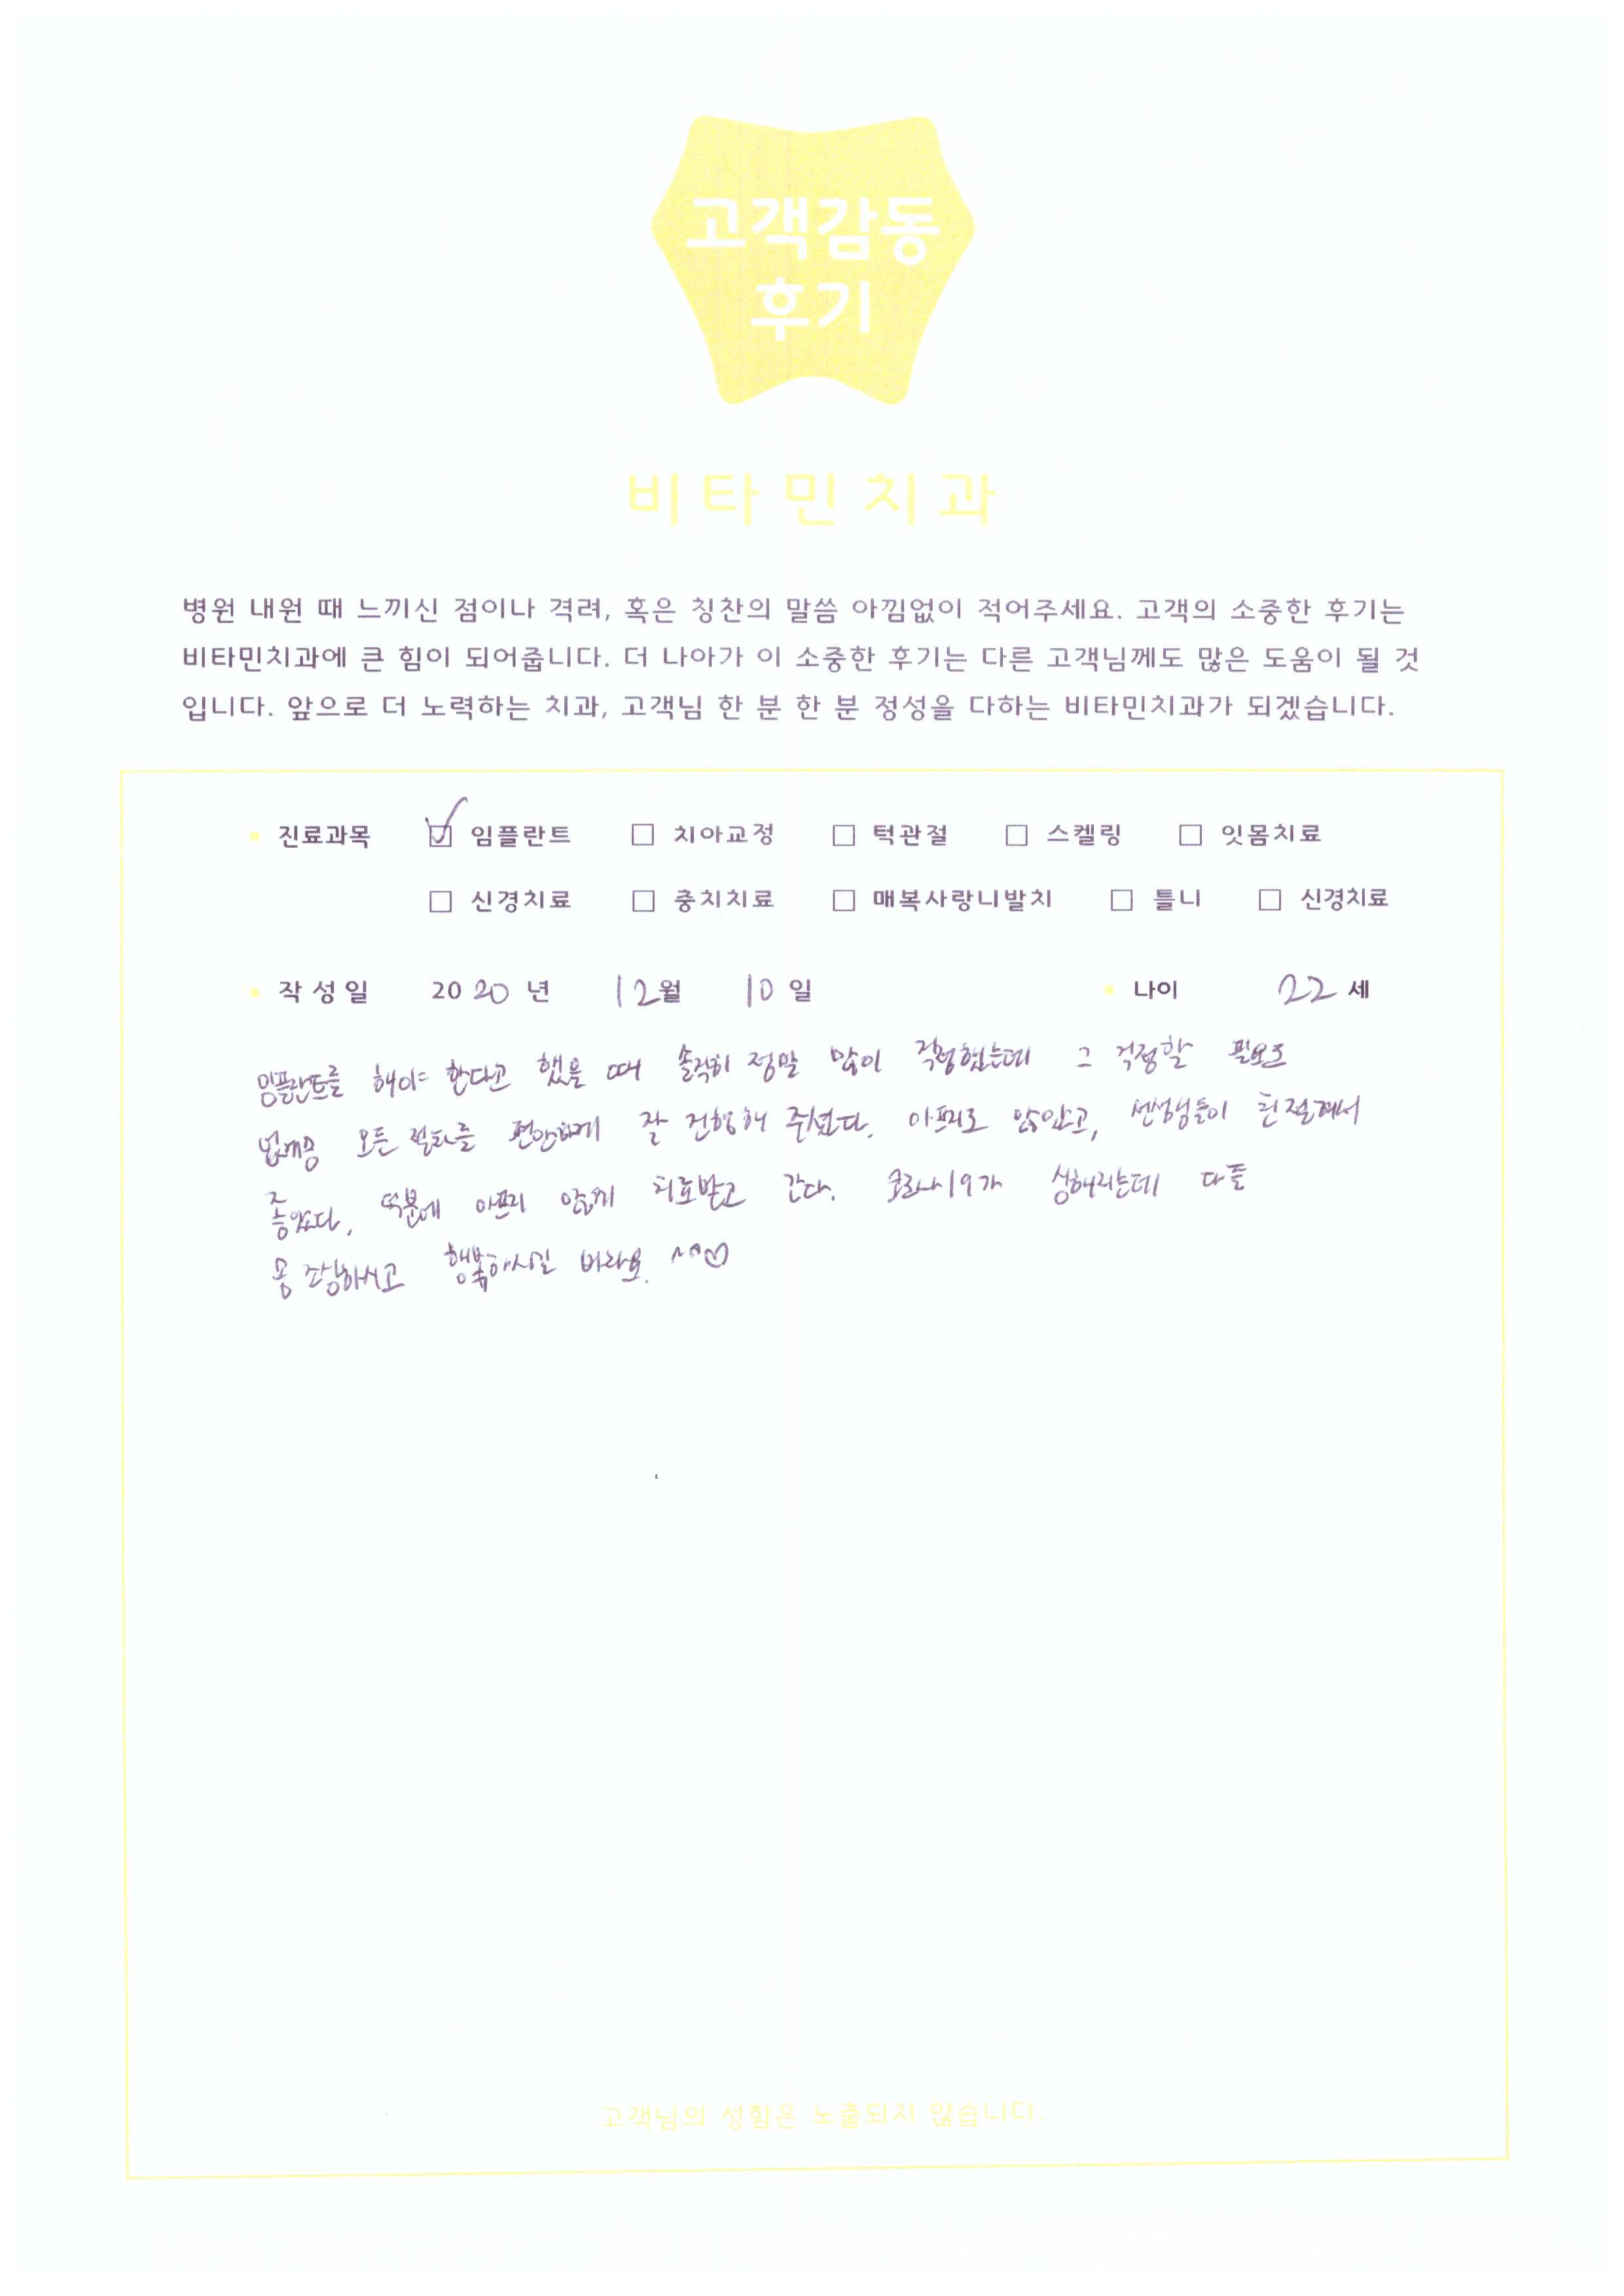 고객감동
후기
비타민치과
병원 내원 때 느끼신 점이나 격려, 혹은 칭찬의 말씀 아낌없이 적어주세요. 고객의 소중한 후기는
비타민치과에 큰 힘이 되어줍니다. 더 나아가 이 소중한 후기는 다른 고객님께도 많은 도움이 될 것
입니다. 앞으로 더 노력하는 치과, 고객님 한 분 한 분 정성을 다하는 비타민치과가 되겠습니다.
진료과목 임플란트 치아교정 턱관절 스켈링 잇몸치료
신경치료 충치치료 매복사랑니발치 틀니 신경치료
작성일 2020년 12월 10일 나이 22세
임플란트를 해야 한다고 했을 때 솔직히 정말 많이 걱정했는데 그 걱정할 필요도
없게끔 모든 절차를 편안하게 잘 진행해 주셨다. 아프지도 않았고, 선생님들이 친절해서
좋았다. 덕분에 아프지 않게 치료받고 간다. 코로나19가 심해지는데 다들
몸 조심하시고 행복하시길 바라요. ^^♡
고객님의 성함은 노출되지 않습니다.